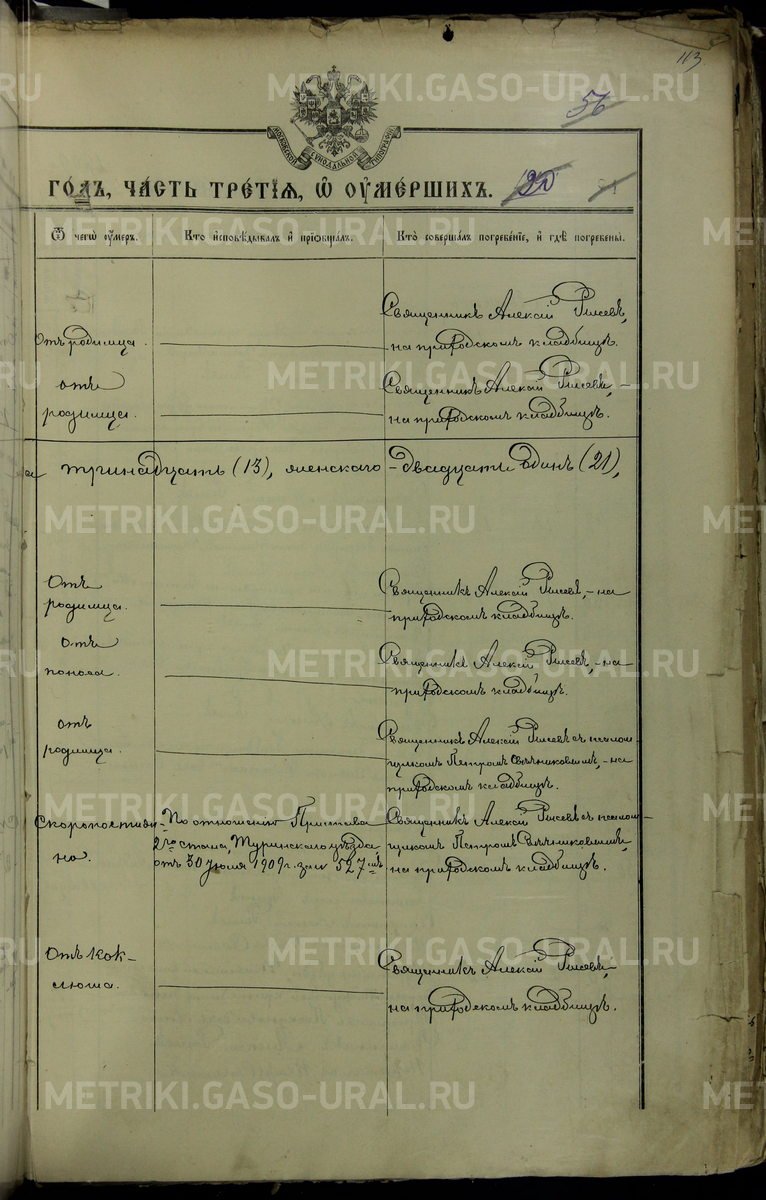 113
56
МОСКОВСКОЙ СѴНОДАЛЬНОЙ ТИПОГРАФІИ
ГО́ДЪ, ЧА́СТЬ ТРЕ́ТІѦ, Ѡ ОУМЕ́РШИХЪ.
Ѿ чегѡ̀ оу҆́меръ.
Кто̀ и҆сповѣ́дывалъ и҆ прїѡбща́лъ.
Кто̀ соверша́лъ погребе́нїе, и҆ гдѣ̀ погребены̀.
Отъ родимца.
Священникъ Алексій
на приходскомъ кладбищѣ.
отъ
родимца.
Священникъ Алексій
на приходскомъ кладбищѣ.
тринадцать (13), женскаго - двадцать один (21),
Отъ
родимца.
Священникъ Алексій - на
приходскомъ кладбищѣ.
Отъ
поноса.
Священникъ Алексій - на
приходскомъ кладбищѣ.
отъ
родимца.
Священникъ Алексій съ псалом
щикомъ Петромъ - на
приходскомъ кладбищѣ.
Скоропостиж-
но.
По отношенію Пристава
2го стана, Туринскаго уѣзда,
отъ 30 Іюля 1909 г. за № 527
Священникъ Алексій съ псалом-
щикомъ Петромъ
на приходскомъ кладбищѣ.
Отъ кок-
люша.
Священникъ Алексій
на приходскомъ кладбищѣ.
METRIKI.GASO-URAL.RU